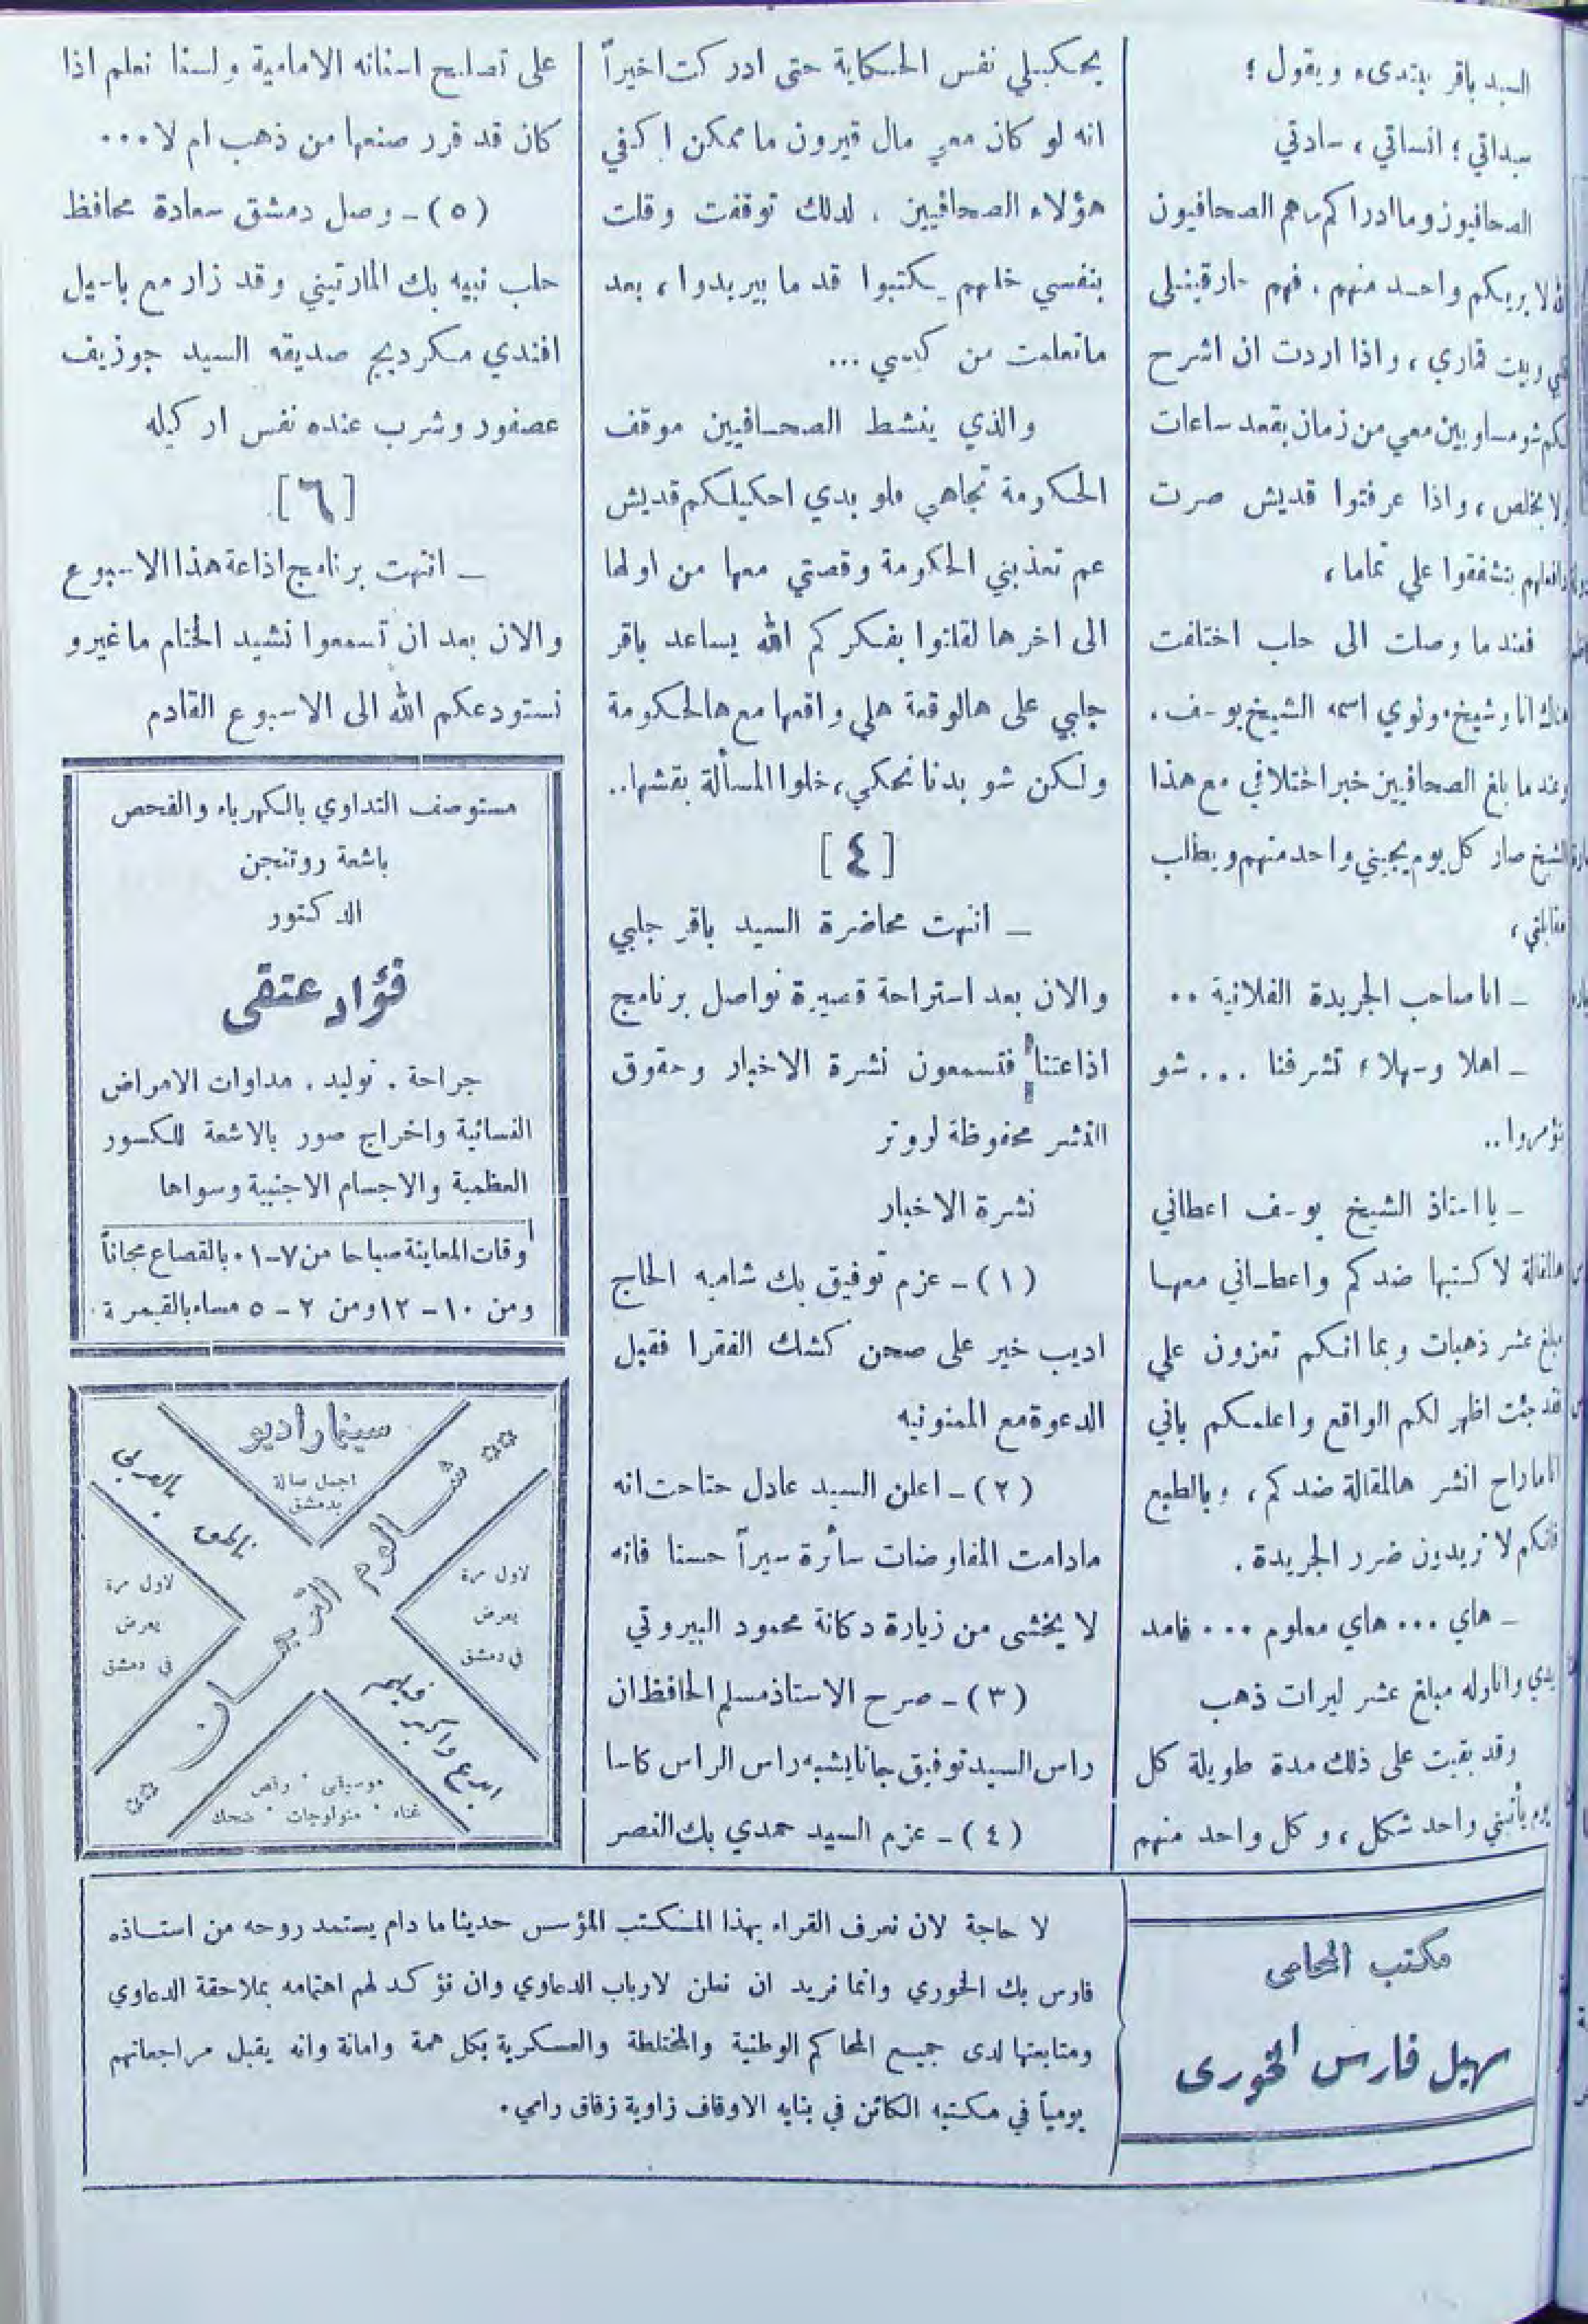 السيد باقر يبتدىء ويقول ؛
سيداتي ؛ انساتي ، سادتي
الصحافيون وما ادراكم ما هم الصحافيون
لا يريكم واحد منهم . فهم حارقينلي
وبيت قاري ، واذا اردت ان اشرح
لكم شو مساويين معي من زمان بقعد ساعات
ولا بخلص ، واذا عرفتوا قديش صرت
دافعلهم بتشفقوا علي تماما ،
فعند ما وصلت الى حلب اختلفت
هناك انا وشيخ ونوي اسمه الشيخ يوسف ،
وعند ما بلغ الصحافيين خبر اختلافي مع هذا
الشيخ صار كل يوم يجيني واحد منهم ويطلب
مقابلتي ،
ـ انا صاحب الجريدة الفلانية ..
ـ اهلا وسهلا ، تشرفنا ... شو
تؤمروا ..
ـ يا استاذ الشيخ يوسف اعطاني
هالمقالة لا كتبها ضدكم واعطاني معها
مبلغ عشر ذهبات وبما انكم تعزون علي
فقد جئت اظهر لكم الواقع واعلمكم باني
انا ماراح انشر هالمقالة ضدكم ، وبالطبع
فانكم لا تريدون ضرر الجريدة .
ـ هاي ... هاي معلوم ... فامد
يدي واناوله مبلغ عشر ليرات ذهب
وقد بقيت على ذلك مدة طويلة كل
يوم يأتيني واحد شكل ، وكل واحد منهم
يحكيلي نفس الحكاية حتى ادركت اخيراً
انه لو كان معي مال قيرون ما ممكن اكفي
هؤلاء الصحافيين . لذلك توقفت وقلت
بنفسي خليهم يكتبوا قد ما بيريدوا ، بعد
ماتعلمت من كيسي ...
والذي ينشط الصحافيين موقف
الحكومة تجاهي فلو بدي احكيلكم قديش
عم تعذبني الحكومة وقصتي معها من اولها
الى اخرها لقلتوا بفكركم الله يساعد باقر
جلبي على هالوقعة هلي واقعها مع هالحكومة
ولكن شو بدنا نحكي ، خلوا المسألة بقشها ..
[ ٤ ]
ـ انتهت محاضرة السيد باقر جلبي
والان بعد استراحة قصيرة نواصل برنامج
اذاعتنا فتسمعون نشرة الاخبار وحقوق
النشر محفوظة لروتر
نشرة الاخبار
(١) ـ عزم توفيق بك شاميه الحاج
اديب خير على صحن كشك الفقرا فقبل
الدعوة مع الممنونيه
(٢) ـ اعلن السيد عادل حتاحت انه
مادامت المفاوضات سائرة سيراً حسنا فانه
لا يخشى من زيارة دكانة محمود البيروتي
(٣) ـ صرح الاستاذ مسلم الحافظ ان
راس السيد توفيق جانا يشبه راس الراس كاسا
(٤) ـ عزم السيد حمدي بك النصر
على تصليح اسنانه الامامية ولسنا نعلم اذا
كان قد قرر صنعها من ذهب ام لا ...
(٥) ـ وصل دمشق سعادة محافظ
حلب نبيه بك المارتيني وقد زار مع باسيل
افندي مسكرديج صديقه السيد جوزيف
عصفور وشرب عنده نفس اركيله
[ ٦ ]
ـ انتهت برنامج اذاعة هذا الاسبوع
والان بعد ان تسمعوا نشيد الختام ماغيرو
نستودعكم الله الى الاسبوع القادم
مستوصف التداوي بالكهرباء والفحص
باشعة روتنجن
الدكتور
فؤاد عتقى
جراحة . توليد . مداوات الامراض
النسائية واخراج صور بالاشعة للكسور
العظمية والاجسام الاجنبية وسواها
اوقات المعاينة صباحا من ٧-١٠ بالقصاع مجاناً
ومن ١٠ - ١٢ ومن ٢ - ٥ مساء بالقيمرية
سينما راديو
اجمل صالة
بدمشق
شالوم الترجمان
ناطق بالعربي
لاول مرة
يعرض
في دمشق
لاول مرة
يعرض
في دمشق
ابدع واكبر فيلم
موسيقى . رقص
غناء . منولوجات . ضحك
مكتب المحامى
سهيل فارس الخورى
لا حاجة لان نعرف القراء بهذا المكتب المؤسس حديثا ما دام يستمد روحه من استاذه
فارس بك الخوري وانما نريد ان نعلن لارباب الدعاوي وان نؤكد لهم اهتمامه بملاحقة الدعاوي
ومتابعتها لدى جميع المحاكم الوطنية والمختلطة والعسكرية بكل همة وامانة وانه يقبل مراجعاتهم
يومياً في مكتبه الكائن في بنايه الاوقاف زاوية زقاق رامي .